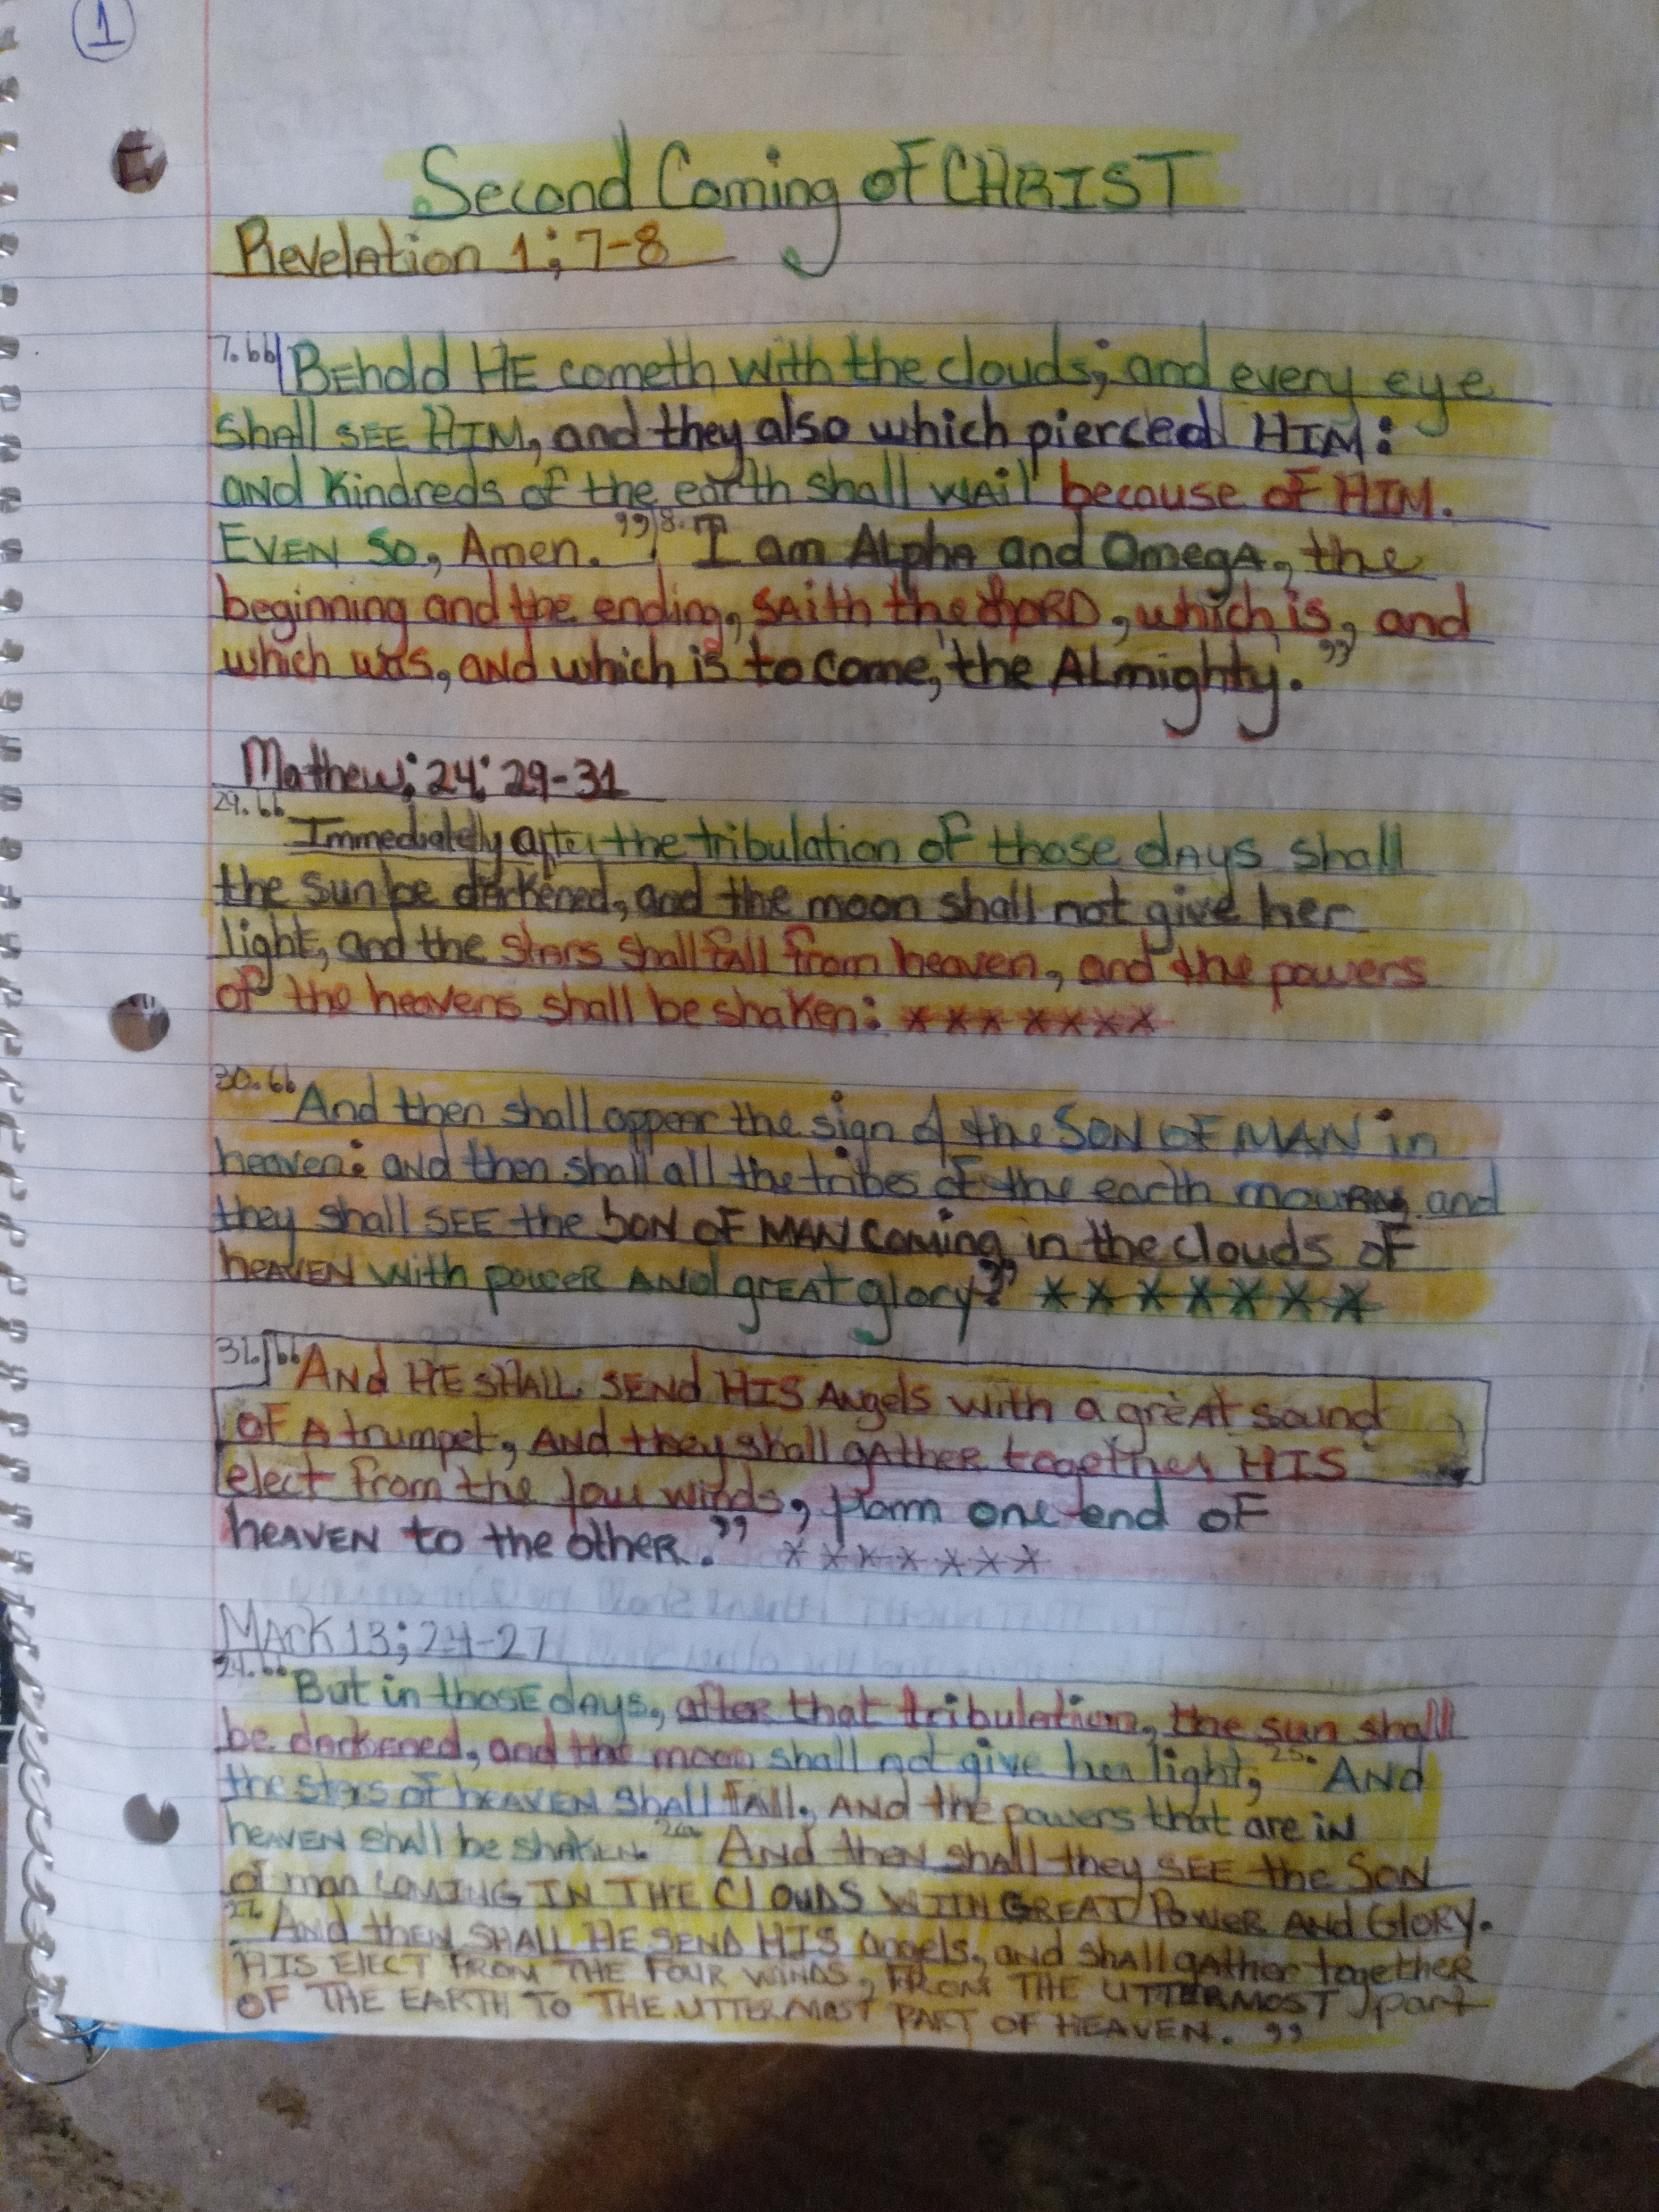 1
Second Coming of CHRIST
Revelation 1; 7-8
7. “Behold HE cometh with the clouds; and every eye
shall SEE HIM, and they also which pierced HIM:
and Kindreds of the earth shall wail because of HIM.
EVEN SO, Amen.” 8. “I am Alpha and Omega, the
beginning and the ending, saith the LORD, which is, and
which was, and which is to come, the Almighty.”
Mathew; 24: 29-31
29. “Immediatelly after the tribulation of those days shall
the sun be darkened, and the moon shall not give her
light, and the stars shall fall from heaven, and the powers
of the heavens shall be shaken: * * * * * * *
30. “And then shall appear the sign of the SON OF MAN in
heaven: and then shall all the tribes of the earth mourn, and
they shall SEE the SON OF MAN coming in the clouds of
heaven with power and great glory.” * * * * * * *
31. “And HE SHALL SEND HIS Angels with a great sound
of a trumpet, and they shall gather together HIS
elect from the four winds, from one end of
heaven to the other.” * * * * * * *
Mark 13; 24-27
24. “But in those days, after that tribulation, the sun shall
be darkened, and the moon shall not give her light, 25. And
the stars of heaven shall fall, and the powers that are in
heaven shall be shaken. 26. And then shall they SEE the SON
of man COMING IN THE CLOUDS WITH GREAT Power AND GLORY.
27. And then SHALL HE SEND HIS angels, and shall gather together
HIS ELECT FROM THE FOUR WINDS, FROM THE UTTERMOST part
OF THE EARTH TO THE UTTERMOST PART OF HEAVEN.”